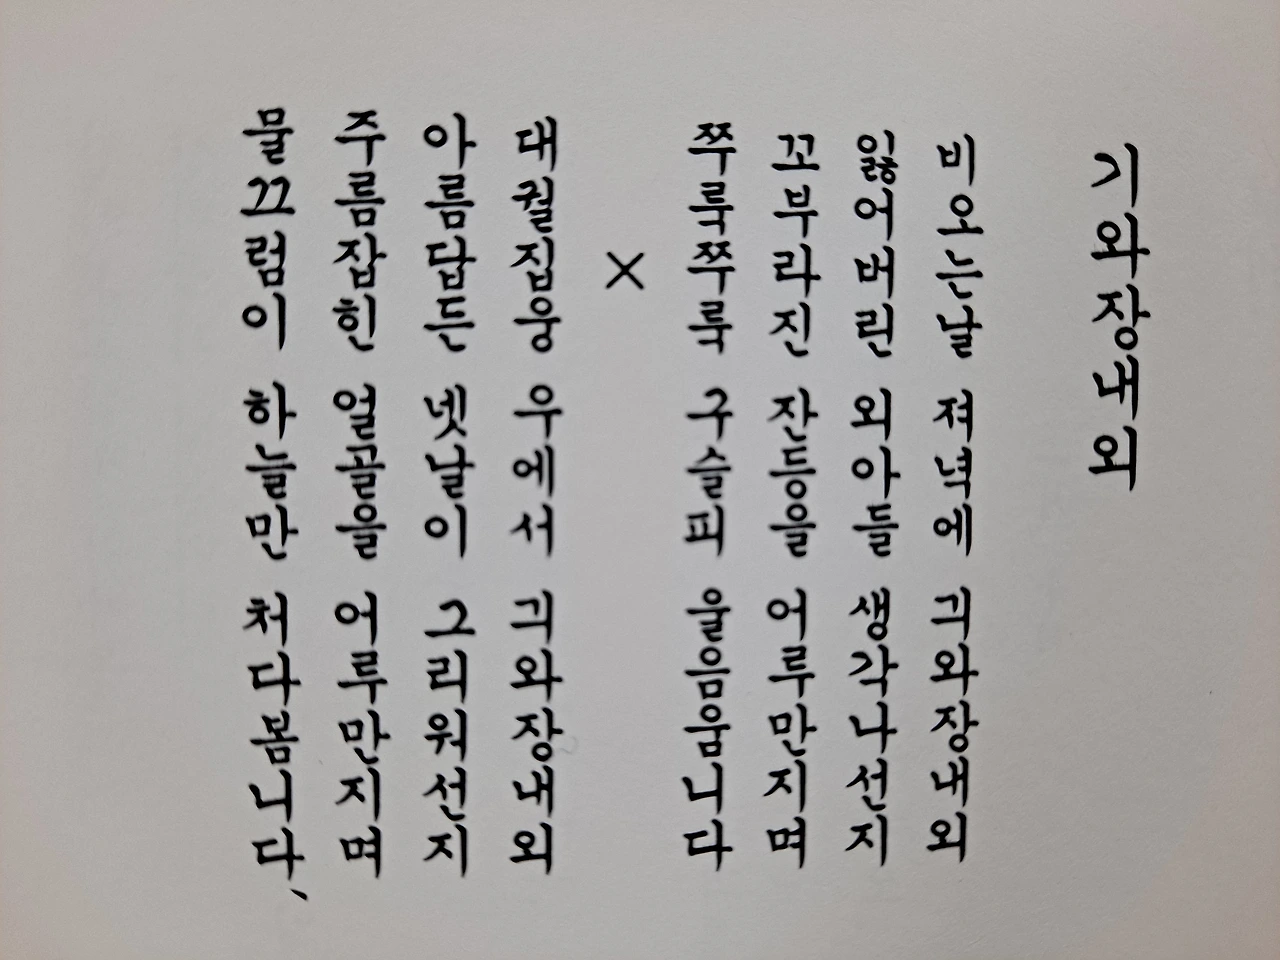 기와장내외
비오는날 져녁에 긔와장내외
잃어버린 외아들 생각나선지
꼬부라진 잔등을 어루만지며
쭈룩쭈룩 구슬피 울음웁니다
×
대궐집웅 우에서 긔와장내외
아름답든 넷날이 그리워선지
주름잡힌 얼골을 어루만지며
물끄럼이 하늘만 처다봅니다、